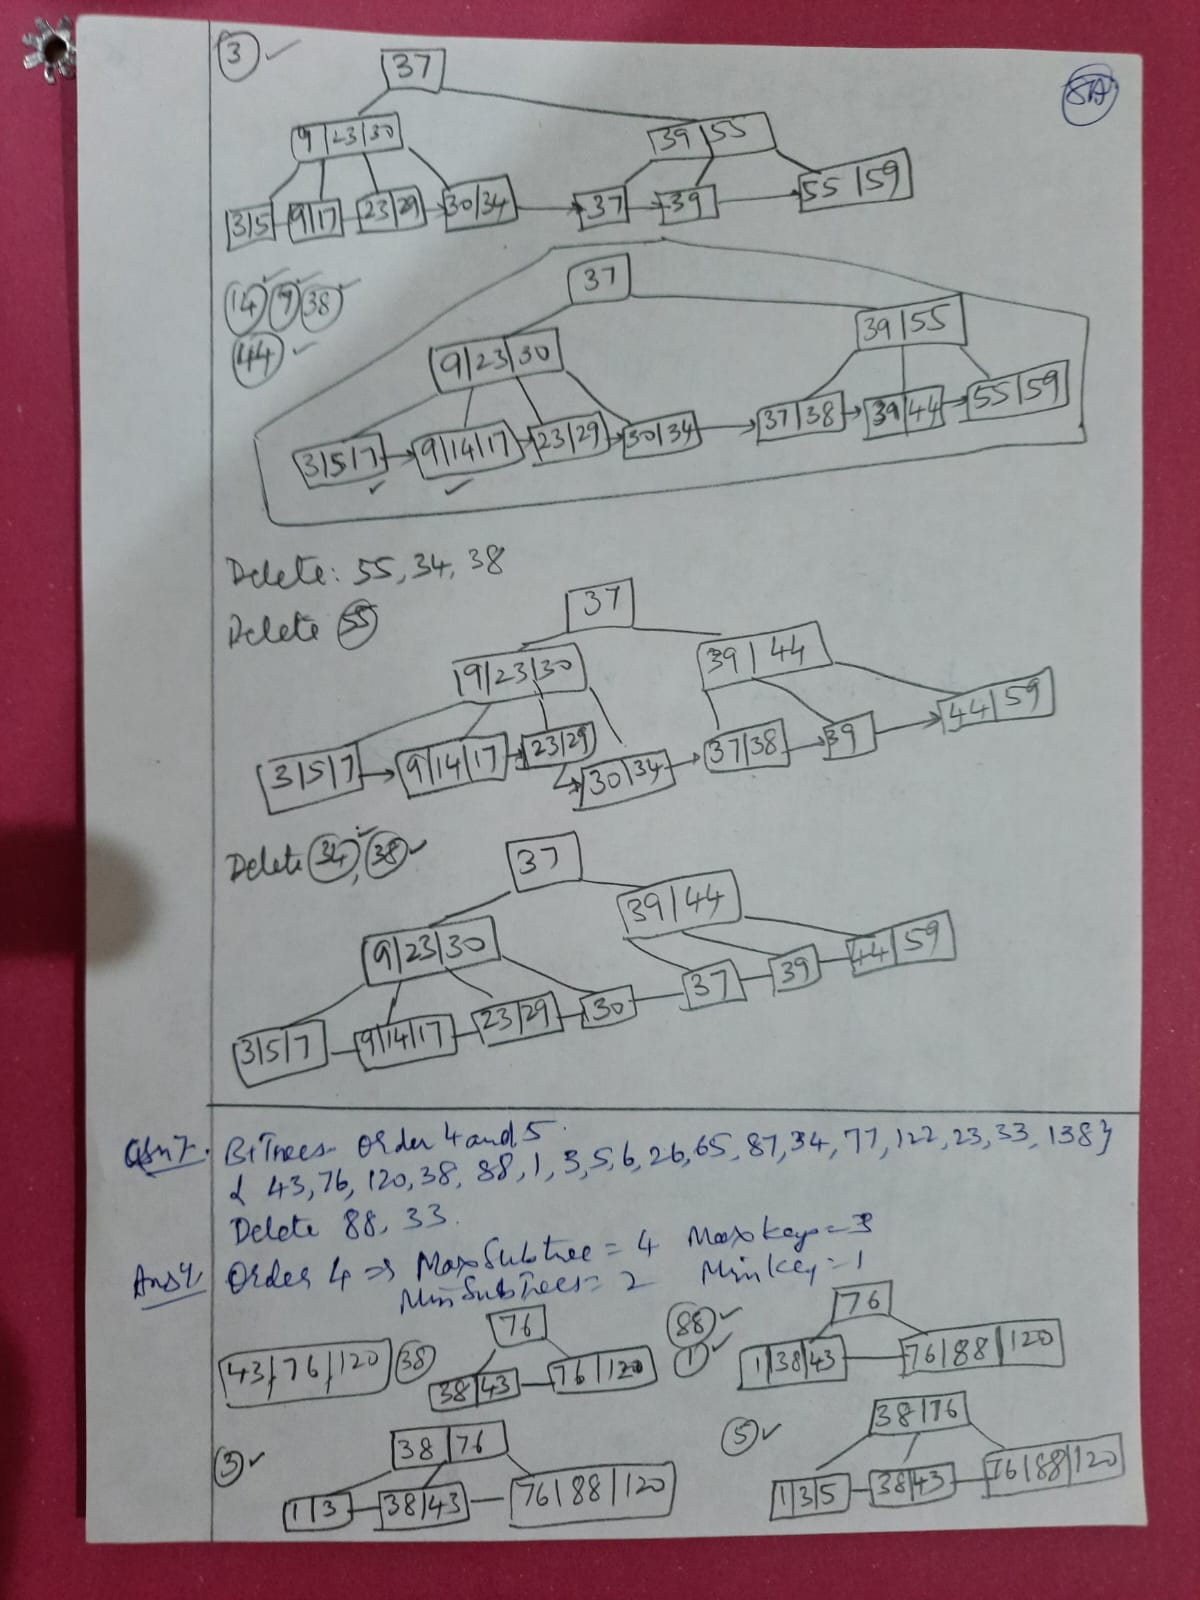 ③ ✓
37
9|23|30 39|55
3|5 9|17 23|29 30|34 37 39 55|59
14 ✓ 7 ✓ 38 ✓
44 ✓
37
9|23|30 39|55
3|5|7 9|14|17 23|29 30|34 37|38 39|44 55|59
Delete: 55, 34, 38
Delete 55
37
9|23|30 39|44
3|5|7 9|14|17 23|29 30|34 37|38 39 44|59
Delete 34 ✓, 38 ✓
37
9|23|30 39|44
3|5|7 9|14|17 23|29 30 37 39 44|59
Qsn 7. B+Trees - Order 4 and 5.
{ 43, 76, 120, 38, 88, 1, 3, 5, 6, 26, 65, 87, 34, 77, 122, 23, 33, 138 }
Delete 88, 33.
Order 4 => Max Subtree = 4 Max key = 3
Min SubTrees = 2 Min Key = 1
43, 76, 120
38
76
38|43 76|120
88 ✓
1 ✓
76
1|38|43 76|88|120
③ ✓
38|76
1|3 38|43 76|88|120
⑤ ✓
38|76
1|3|5 38|43 76|88|120